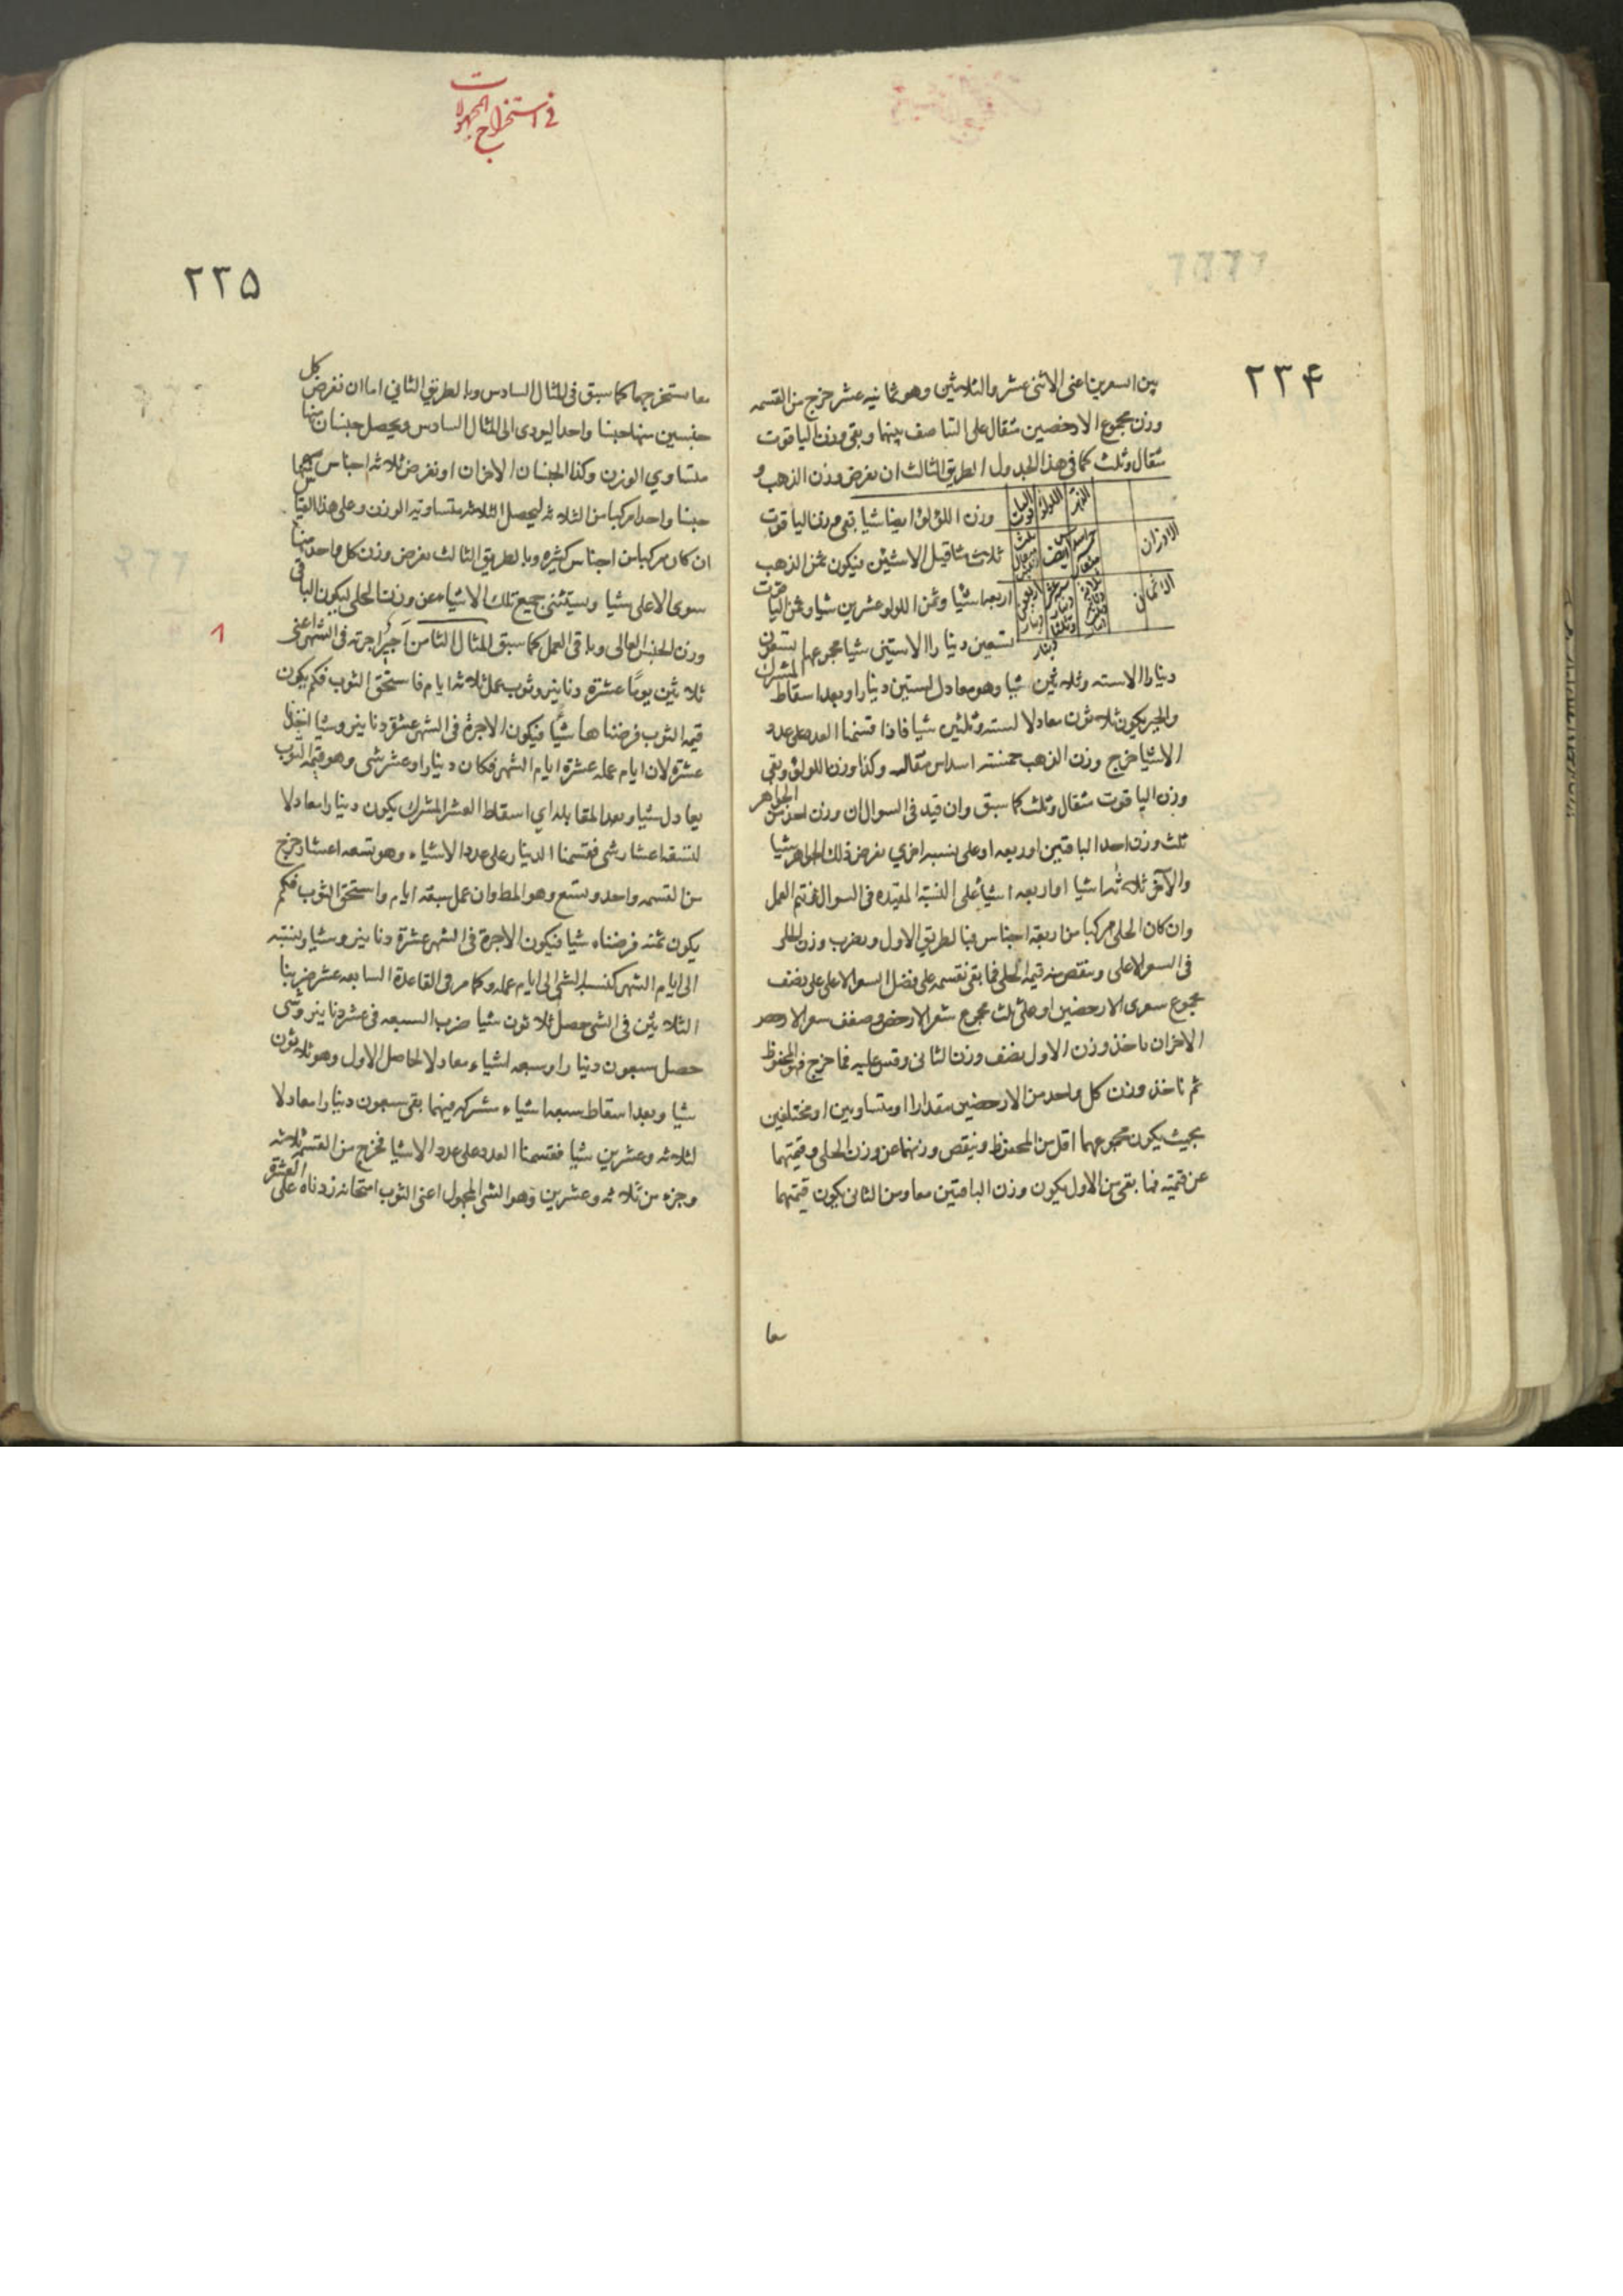 ٢٣۴
بين السعرين اعنى الاثنى عشر والثلاثين وهو ثمانيه عشر خرج من القسمه
وزن مجموع الارخصين مثقال على التناصف بينهما وبقى وزن الياقوت
مثقال وثلث كما فى هذا الجدول الطريق الثالث ان نفرض وزن الذهب و
وزن اللؤلؤ ايضا شيا بقى وزن الياقوت
ثلاث مثاقيل الا شئين فيكون ثمن الذهب
اربعه اشيا وثمن اللولو عشرين شيا وثمن الياقوت
تسعين دينارا الا ستين شيا مجموعهم تسعون
الذهب اللؤلؤ الياقوت
الاوزان
الاثمان
دينارا الا سته وثلاثين شيا وهو معادل لستين دينارا وبعد اسقاط المشترك
والجبر يكون ثلاثون معادلا لسته وثلثين شيا فاذا قسمنا العدد على عدد
الاشيا خرج وزن الذهب خمسة اسداس مثقال وكذا وزن اللولؤ وبقى
وزن الياقوت مثقال وثلث كما سبق وان قيد فى السوال ان وزن احد من الجواهر
ثلث وزن احد الباقيين او ربعه او على نسبه اخري نفرض ذلك الجواهر شيا
والآخر ثلاثه اشيا او اربعه اشيا على النسبة المقيده فى السوال فنتم العمل
وان كان الحلى مركبا من اربعة اجناس فبالطريق الاول ويضرب وزن الحلى
فى السعر الاعلى وينقص منه قيمه الحلى فما بقى نقسمه على فضل السعر الاعلى على نصف
مجموع سعرى الارخصين او على ثلث مجموع سعر الارخص وضعف سعر الارخص
الاخر ان ناخذ وزن الاول نصف وزن الثانى وقس عليه فما خرج فهو المحفوظ
ثم ناخذ وزن كل واحد من الارخصين مقدارا او متساويين او مختلفين
بحيث يكون مجموعهما اقل من المحفوظ وينقص وزنهما عن وزن الحلى وقيمتهما
عن قيمته فما بقى من الاول يكون وزن الباقيتين معا ومن الثانى يكون قيمتهما
معا
فى استخراج المجهولات
٢٣۵
معا نستخرجهما كما سبق فى المثال السادس وبالطريق الثاني اما ان نفرض كل
جنسين منها جنسا واحدا ليودى الى المثال السادس ويحصل جنسان منها
متساوي الوزن وكذا الجنسان الاخران او نفرض ثلاثه اجناس منها
جنسا واحدا مركبا من الثلاثه ليحصل الثلاثه متساويه الوزن وعلى هذا القياس
ان كان مركبا من اجناس كثيره وبالطريق الثالث نفرض وزن كل واحد منها
سوى الاعلى شيا ويستثنى جميع تلك الاشياء عن وزن الحلى ليكون الباقى
وزن الجنس العالى وباقى العمل كما سبق المثال الثامن اجير اجرته فى الشهر اعنى
ثلاثين يومًا عشرة دنانير وثوب عمل ثلاثه ايام فاستحق الثوب فكم يكون
قيمه الثوب فرضناها شيًا فيكون الاجرة فى الشهر عشرة دنانير وشيا
عشرة لان ايام عمله عشر ايام الشهر فكان دينارا وعشر شى وهو قيمه الثوب
يعادل شيا وبعد المقابله اي اسقاط العشر المشترك يكون دينارا معادلا
لتسعه اعشار شى فقسمنا الدينار على عدد الاشياء وهو تسعه اعشار خرج
من القسمه واحد وتسع وهو المط وان عمل سبعة ايام واستحق الثوب فكم
يكون ثمنه فرضناه شيا فيكون الاجرة فى الشهر عشرة دنانير وشيا ونسبته
الى ايام الشهر كنسبه الشى الى ايام عمله وكما مر فى القاعدة السابعه عشر ضربنا
الثلاثين فى الشى حصل ثلاثون شيا ضرب السبعه فى عشر دنانير وشى
حصل سبعون دينارا وسبعه اشياء معادلا لحاصل الاول وهو ثلاثون
شيا وبعد اسقاط سبعه اشياء مشتركه بينهما بقى سبعون دينارا معادلا
لثلاثه وعشرين شيا فقسمنا العدد على عدد الاشيا فخرج من القسمه ثلاثه
وجزء من ثلاثه وعشرين وهو الشى المجهول اعنى الثوب امتحانه زدناه على العشرة